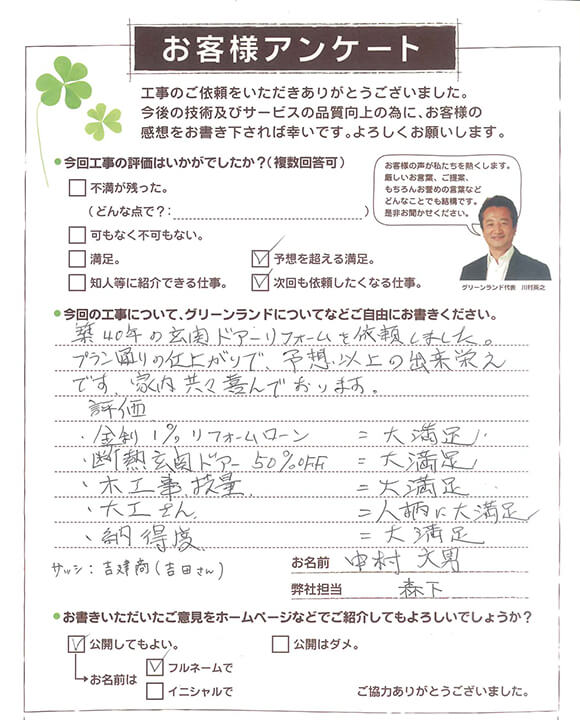 お客様アンケート
工事のご依頼をいただきありがとうございました。
今後の技術及びサービスの品質向上の為に、お客様の
感想をお書き下されば幸いです。よろしくお願いします。
今回工事の評価はいかがでしたか?(複数回答可)
不満が残った。
(どんな点で?: )
可もなく不可もない。
満足。
予想を超える満足。
知人等に紹介できる仕事。
次回も依頼したくなる仕事。
お客様の声が私たちを熱くします。
厳しいお言葉、ご提案、
もちろんお誉めの言葉など
どんなことでも結構です。
是非お聞かせください。
グリーンランド代表 川村英之
今回の工事について、グリーンランドについてなどご自由にお書きください。
築40年の玄関ドアーリフォームを依頼しました。
プラン通りの仕上がりで、予想以上の出来栄え
です、家内共々喜んでおります。
評価
・金利1%リフォームローン = 大満足
・断熱玄関ドアー50%OFF = 大満足
・木工事技量 = 大満足
・大工さん =人柄に大満足
・納得度 = 大満足
サッシ:吉建商(吉田さん)
お名前 中村 文男
弊社担当 森下
お書きいただいたご意見をホームページなどでご紹介してもよろしいでしょうか?
公開してもよい。
公開はダメ。
お名前は
フルネームで
イニシャルで
ご協力ありがとうございました。